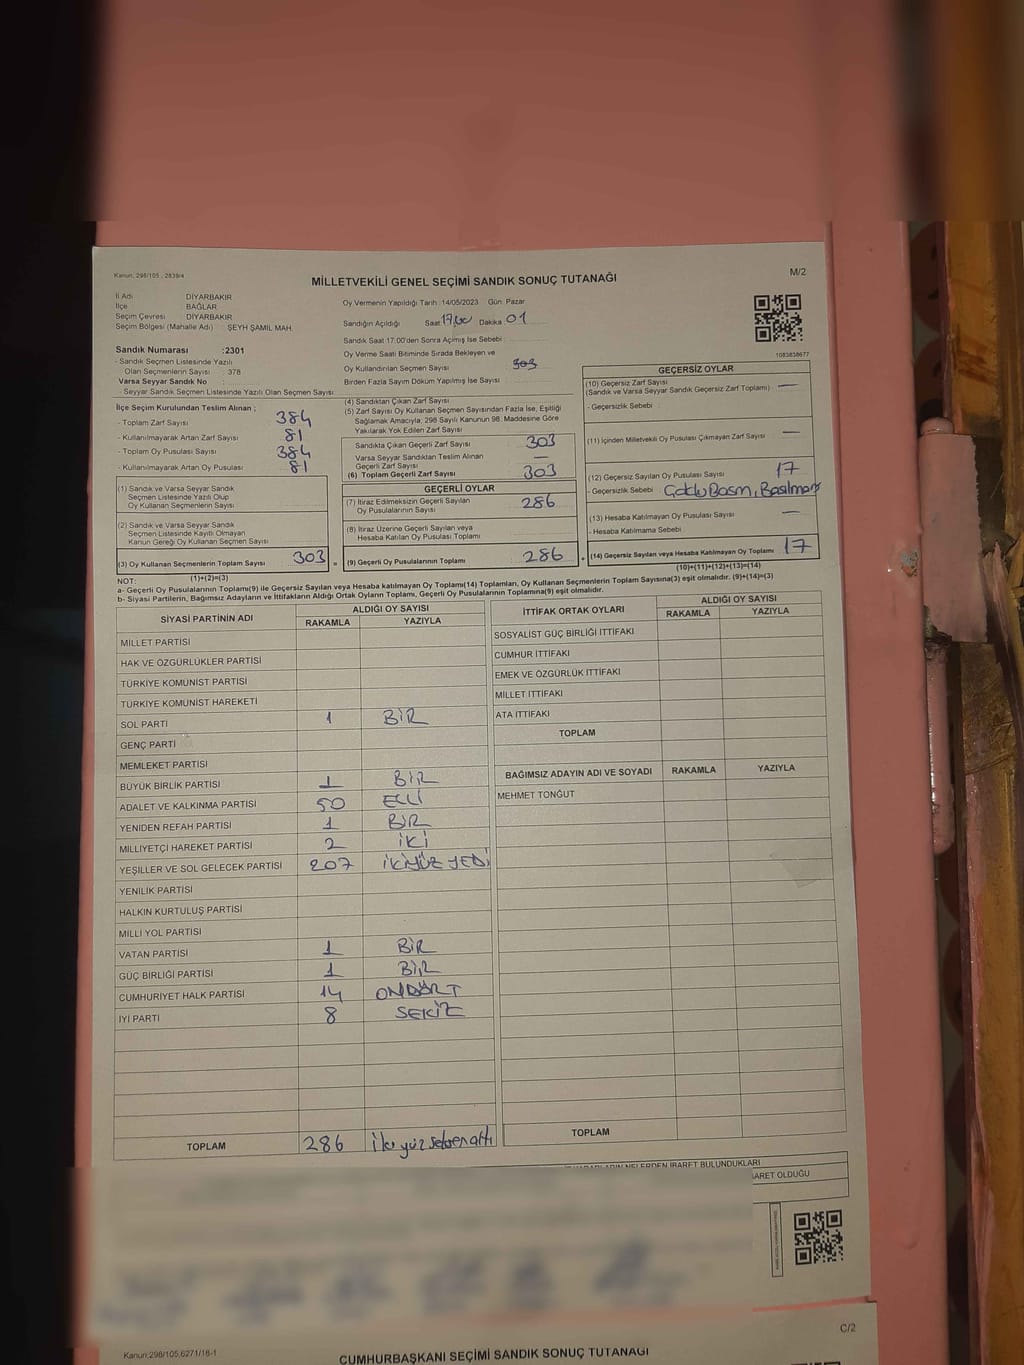 Kanun: 298/105, 2839/4
MİLLETVEKİLİ GENEL SEÇİMİ SANDIK SONUÇ TUTANAĞI
M/2
İl Adı DİYARBAKIR
İlçe BAĞLAR
Seçim Çevresi DİYARBAKIR
Seçim Bölgesi (Mahalle Adı) : ŞEYH ŞAMİL MAH.
Sandık Numarası :2301
- Sandık Seçmen Listesinde Yazılı
Olan Seçmenlerin Sayısı : 378
Varsa Seyyar Sandık No
- Seyyar Sandık Seçmen Listesinde Yazılı Olan Seçmen Sayısı
Oy Vermenin Yapıldığı Tarih :14/05/2023 Gün: Pazar
Sandığın Açıldığı Saat 17.00 Dakika 01
Sandık Saat 17:00'den Sonra Açılmış İse Sebebi :
Oy Verme Saati Bitiminde Sırada Bekleyen ve
Oy Kullandırılan Seçmen Sayısı 303
Birden Fazla Sayım Döküm Yapılmış İse Sayısı
1083838677
İlçe Seçim Kurulundan Teslim Alınan ;
- Toplam Zarf Sayısı 384
- Kullanılmayarak Artan Zarf Sayısı 81
- Toplam Oy Pusulası Sayısı 384
- Kullanılmayarak Artan Oy Pusulası 81
(1) Sandık ve Varsa Seyyar Sandık
Seçmen Listesinde Yazılı Olup
Oy Kullanan Seçmen Sayısı
(2) Sandık ve Varsa Seyyar Sandık
Seçmen Listesinde Kayıtlı Olmayan
Kanun Gereği Oy Kullanan Seçmen Sayısı
(3) Oy Kullanan Seçmenlerin Toplam Sayısı 303
(1)+(2)=(3)
(4) Sandıktan Çıkan Zarf Sayısı
(5) Zarf Sayısı Oy Kullanan Seçmen Sayısından Fazla İse, Eşitliği
Sağlamak Amacıyla; 298 Sayılı Kanunun 98. Maddesine Göre
Yakılarak Yok Edilen Zarf Sayısı
Sandıkta Çıkan Geçerli Zarf Sayısı 303
Varsa Seyyar Sandıktan Teslim Alınan
Geçerli Zarf Sayısı —
(6) Toplam Geçerli Zarf Sayısı 303
GEÇERLİ OYLAR
(7) İtiraz Edilmeksizin Geçerli Sayılan
Oy Pusulalarının Sayısı 286
(8) İtiraz Üzerine Geçerli Sayılan veya
Hesaba Katılan Oy Pusulası Toplamı
(9) Geçerli Oy Pusulalarının Toplamı 286
GEÇERSİZ OYLAR
(10) Geçersiz Zarf Sayısı
(Sandık ve Varsa Seyyar Sandık Geçersiz Zarf Toplamı) —
- Geçersizlik Sebebi
(11) İçinden Milletvekili Oy Pusulası Çıkmayan Zarf Sayısı —
(12) Geçersiz Sayılan Oy Pusulası Sayısı 17
- Geçersizlik Sebebi
(13) Hesaba Katılmayan Oy Pusulası Sayısı —
- Hesaba Katılmama Sebebi
(14) Geçersiz Sayılan veya Hesaba Katılmayan Oy Toplamı 17
(10)+(11)+(12)+(13)=(14)
NOT:
a- Geçerli Oy Pusulalarının Toplamı(9) ile Geçersiz Sayılan veya Hesaba katılmayan Oy Toplamı(14) Toplamları, Oy Kullanan Seçmenlerin Toplam Sayısına(3) eşit olmalıdır. (9)+(14)=(3)
b- Siyasi Partilerin, Bağımsız Adayların ve İttifakların Aldığı Ortak Oyların Toplamı, Geçerli Oy Pusulalarının Toplamına(9) eşit olmalıdır.
SİYASİ PARTİNİN ADI ALDIĞI OY SAYISI
RAKAMLA YAZIYLA
MİLLET PARTİSİ
HAK VE ÖZGÜRLÜKLER PARTİSİ
TÜRKİYE KOMÜNİST PARTİSİ
TÜRKİYE KOMÜNİST HAREKETİ
SOL PARTİ 1 BİR
GENÇ PARTİ
MEMLEKET PARTİSİ
BÜYÜK BİRLİK PARTİSİ 1 BİR
ADALET VE KALKINMA PARTİSİ 50 ELLİ
YENİDEN REFAH PARTİSİ 1 BİR
MİLLİYETÇİ HAREKET PARTİSİ 2 İKİ
YEŞİLLER VE SOL GELECEK PARTİSİ 207 İKİYÜZ YEDİ
YENİLİK PARTİSİ
HALKIN KURTULUŞ PARTİSİ
MİLLİ YOL PARTİSİ
VATAN PARTİSİ 1 BİR
GÜÇ BİRLİĞİ PARTİSİ 1 BİR
CUMHURİYET HALK PARTİSİ 14 ONDÖRT
İYİ PARTİ 8 SEKİZ
TOPLAM 286 İki yüz seksen altı
İTTİFAK ORTAK OYLARI ALDIĞI OY SAYISI
RAKAMLA YAZIYLA
SOSYALİST GÜÇ BİRLİĞİ İTTİFAKI
CUMHUR İTTİFAKI
EMEK VE ÖZGÜRLÜK İTTİFAKI
MİLLET İTTİFAKI
ATA İTTİFAKI
TOPLAM
BAĞIMSIZ ADAYIN ADI VE SOYADI RAKAMLA YAZIYLA
MEHMET TONĞUT
TOPLAM
NELERDEN İBARET BULUNDUKLARI
ARET OLDUĞU
C/2
Kanun:298/105,6271/18-1
CUMHURBAŞKANI SEÇİMİ SANDIK SONUÇ TUTANAĞI